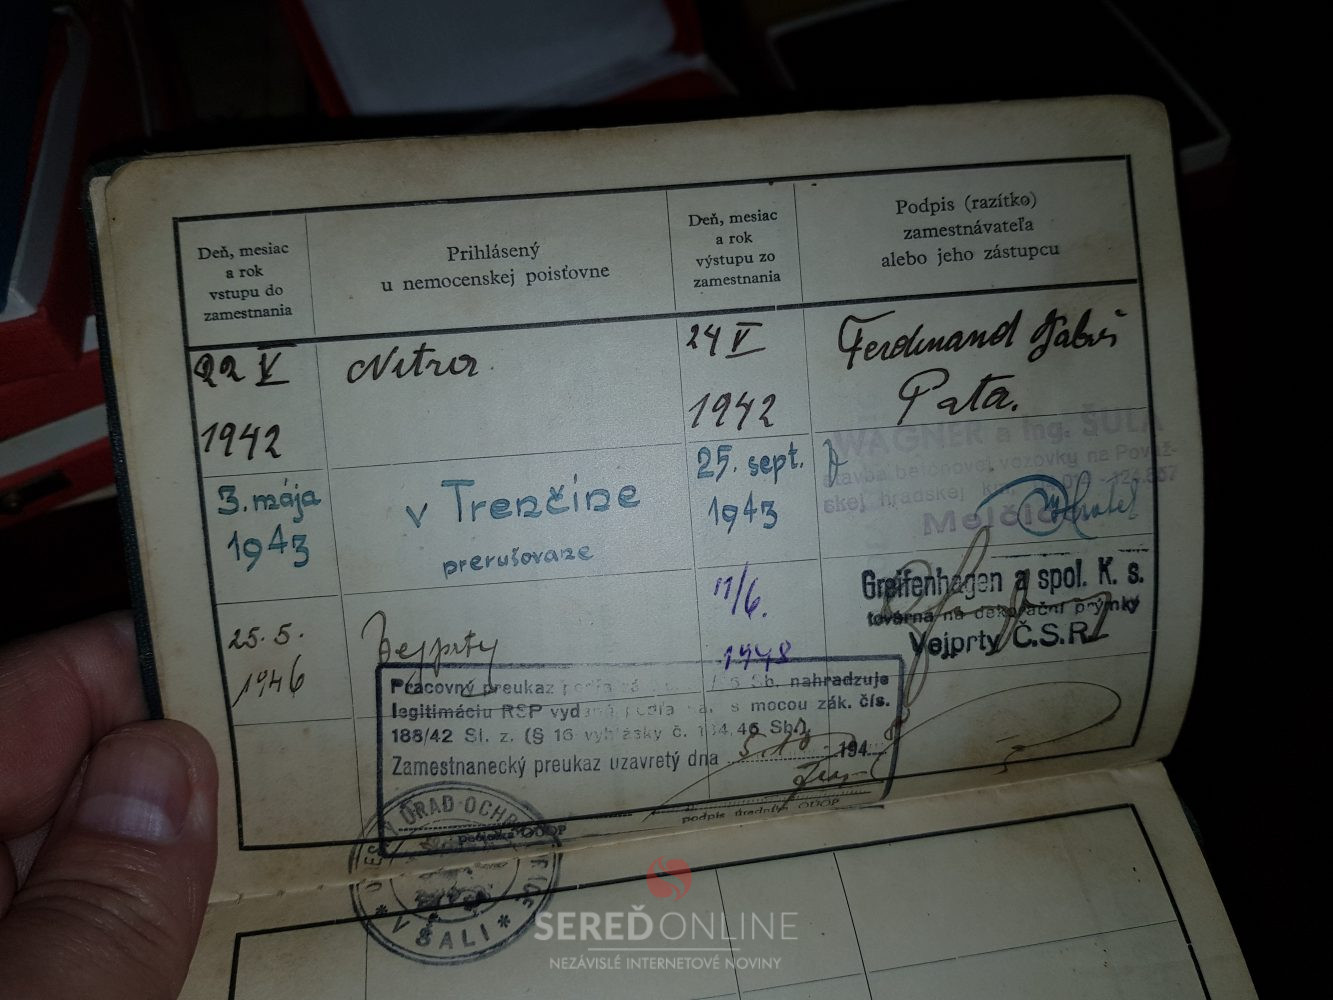 Deň, mesiac
a rok
vstupu do
zamestnania
Prihlásený
u nemocenskej poisťovne
Deň, mesiac
a rok
výstupu zo
zamestnania
Podpis (razítko)
zamestnávateľa
alebo jeho zástupcu
22 V
1942
Nitra.
24 V
1942
Ferdinand
Pata.
3. mája
1943
v Trenčíne
prerušovane
25. sept.
1943
WAGNER a Ing. ŠULA
stavba betónovej vozovky na Považ-
skej hradskej km.
Melčice
25. 5.
1946
Vejprty
11/6.
1948
Greifenhagen a spol. K. s.
továrna na dekorační prýmky
Vejprty Č.S.R.
Pracovný preukaz podľa Sb. nahradzuje
legitimáciu RSP vydanú podľa s mocou zák. čís.
188/42 Sl. z. (§ 16 vyhlásky č. 134/46 Sb.).
Zamestnanecký preukaz uzavretý dna 194
pečiatka ODOP
podpis úradníka ODOP
ÚRAD OCHR
* V ŠALI *
SEREĎONLINE
NEZÁVISLÉ INTERNETOVÉ NOVINY